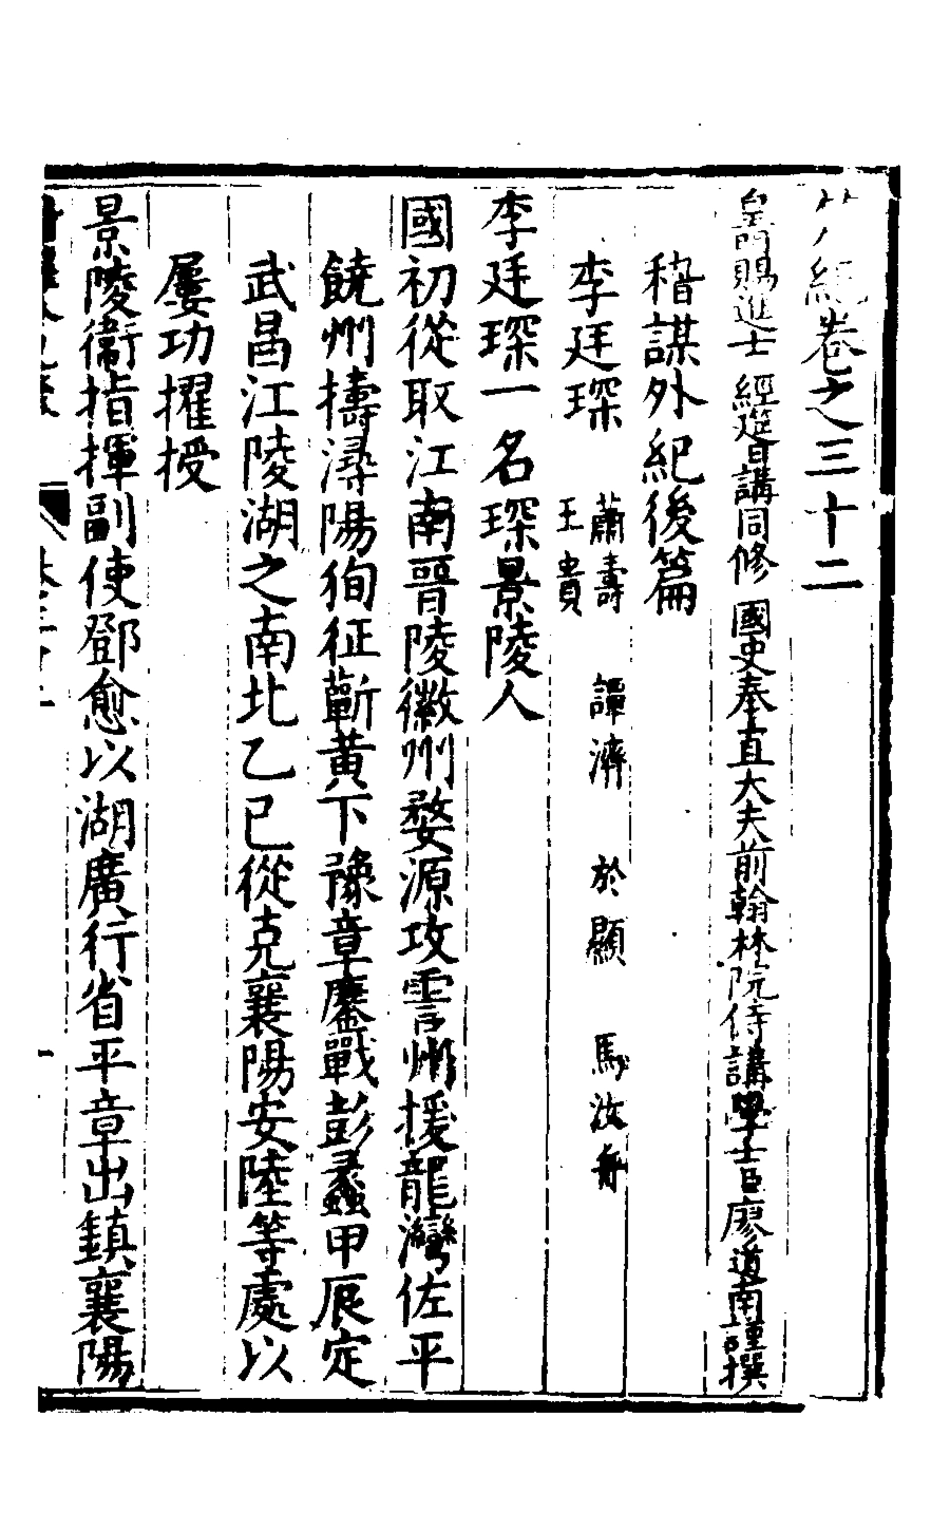 紀卷之三十二
賜進士 經筵日講同修 國史奉直大夫前翰林院侍講學士臣廖道南謹撰
稽謀外紀後篇
李廷琛 蕭壽 譚濟 於顯 馬汝舟
王貴
李廷琛一名琛景陵人
國初從取江南晉陵徽州婺源攻雩州援龍灣佐平
饒州擣潯陽徇征蘄黃下豫章鏖戰彭蠡甲辰定
武昌江陵湖之南北乙巳從克襄陽安陸等處以
屢功擢授
景陵衞指揮副使鄧愈以湖廣行省平章出鎮襄陽